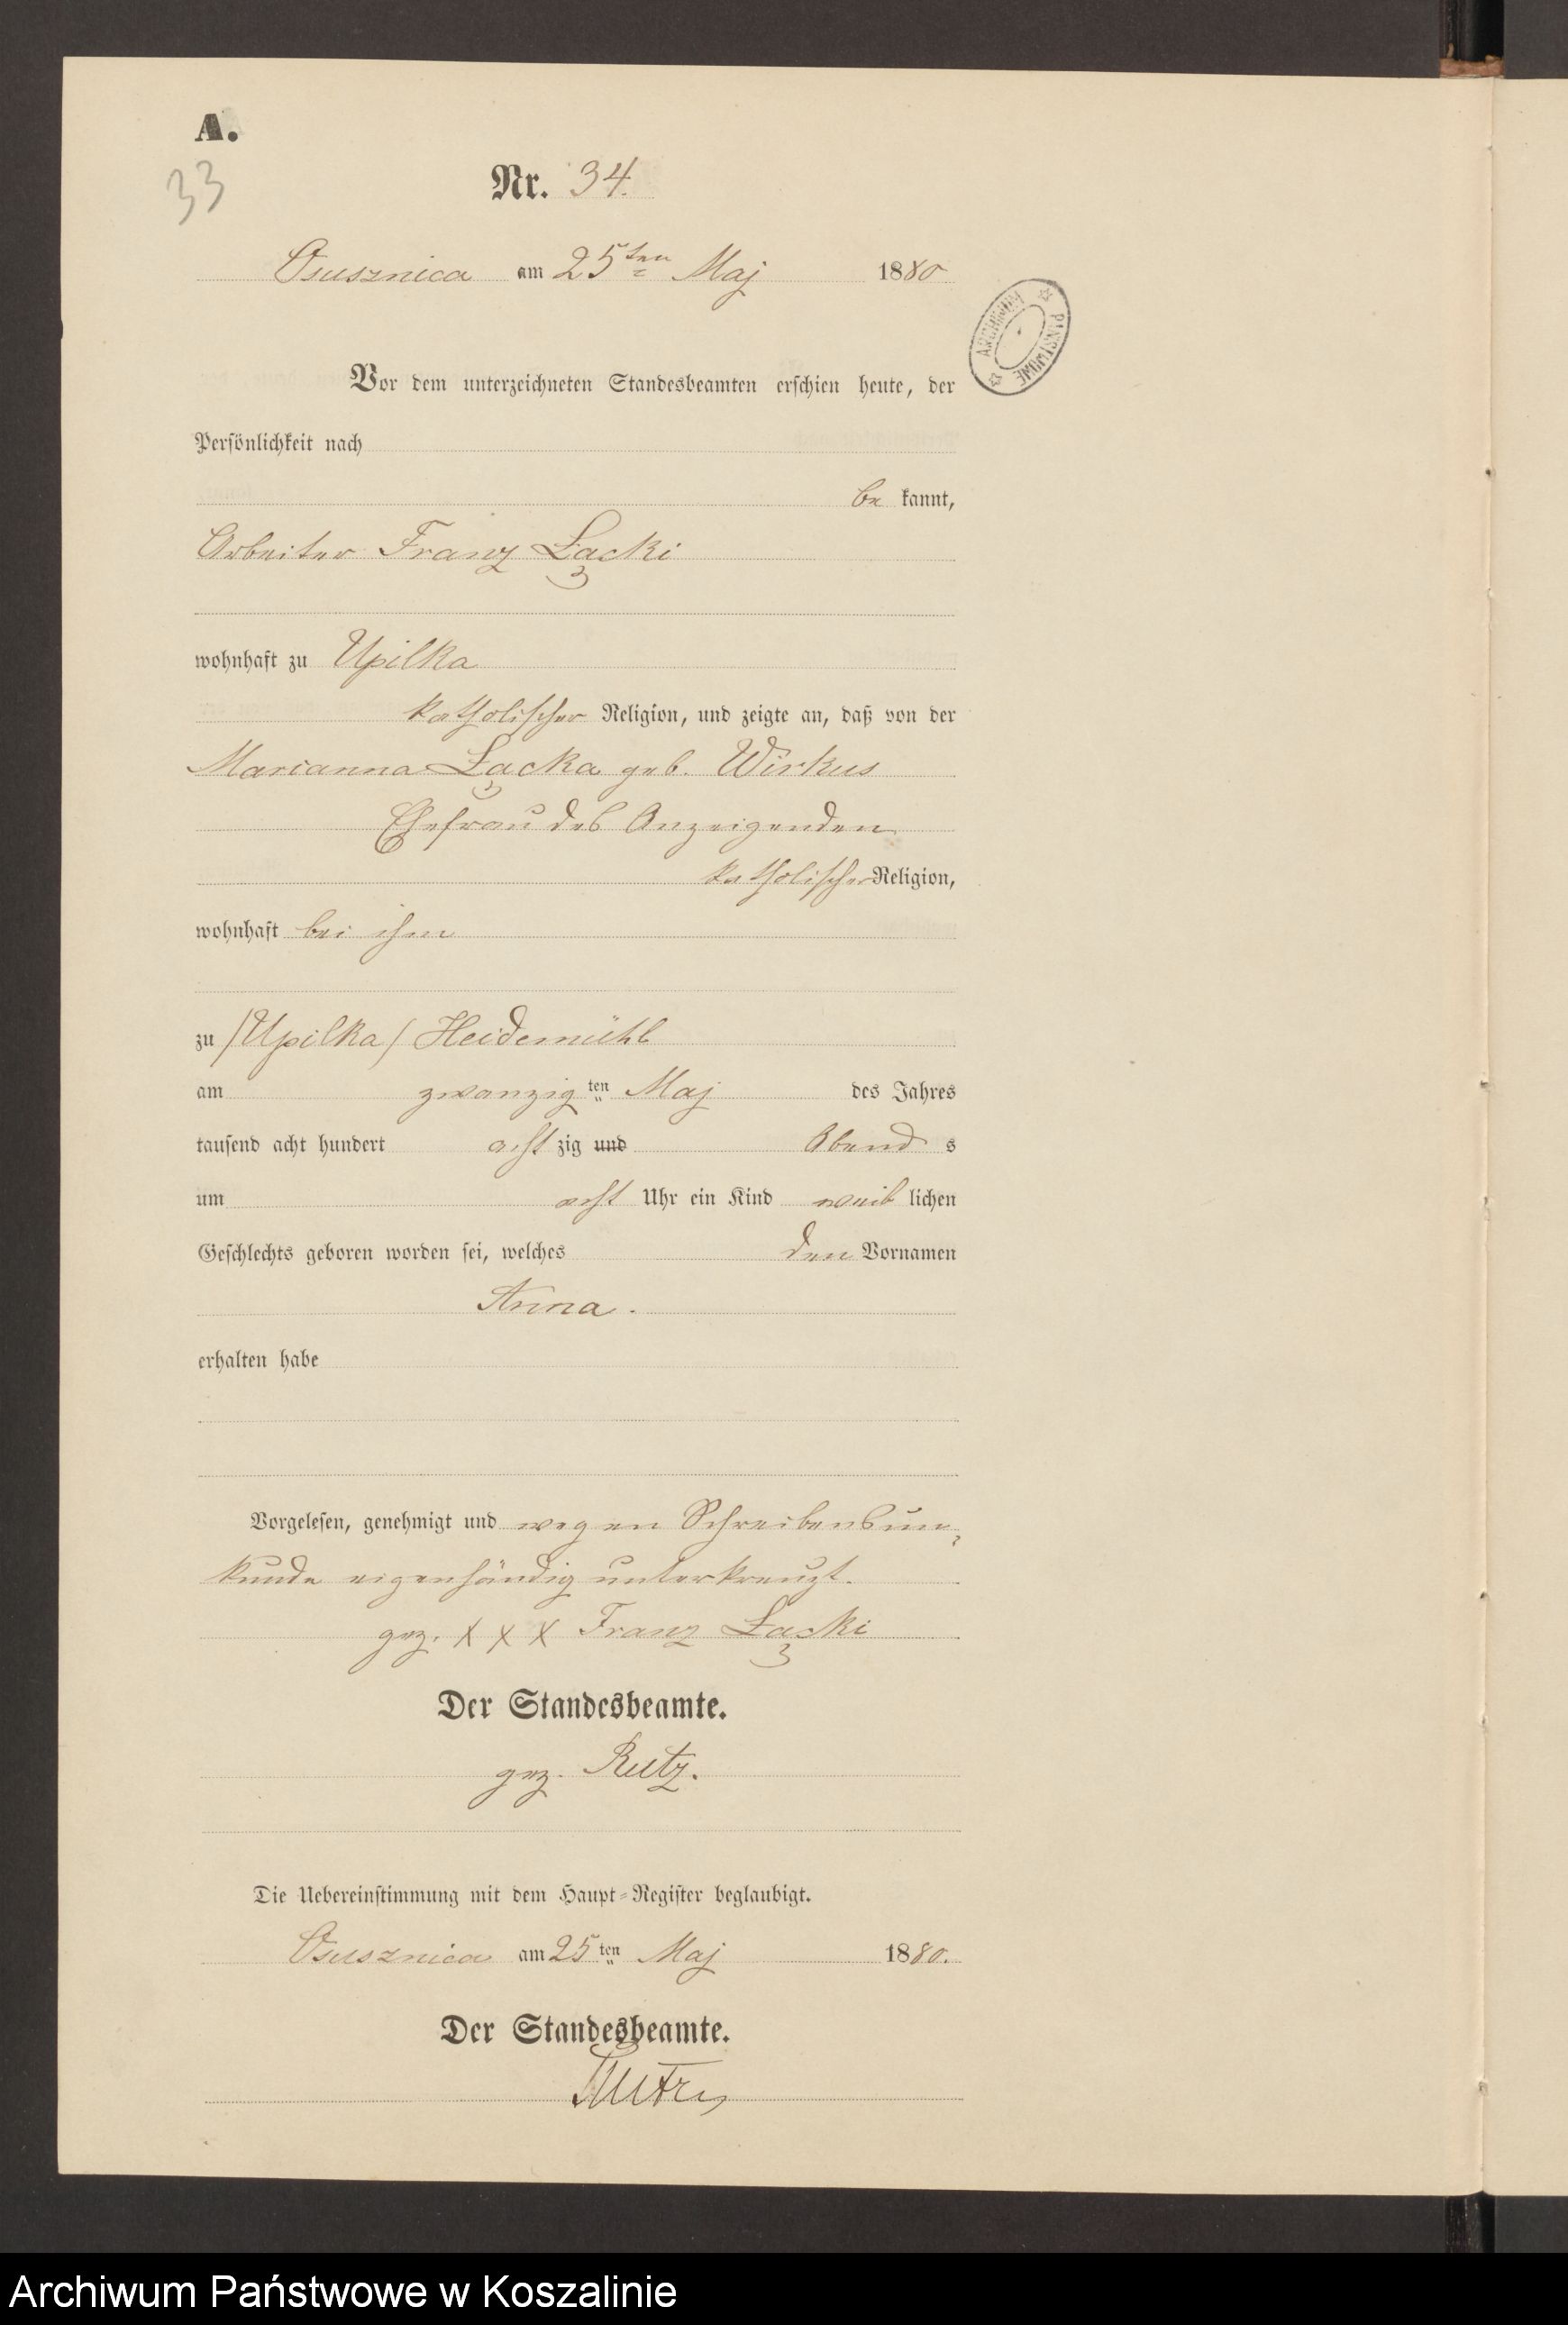 A.
33
Nr. 34.
Osusznica am 25ten Maj 1880
ARCHIWUM PAŃSTWOWE
Vor dem unterzeichneten Standesbeamten erschien heute, der
Persönlichkeit nach
be kannt,
Arbeiter Franz Łącki
wohnhaft zu Upilka
katholischer Religion, und zeigte an, daß von der
Marianna Łącka geb. Wirkus
Ehefrau des Anzeigenden
katholischer Religion,
wohnhaft bei ihm
zu /Upilka/ Heidemühl
am zwanzig ten Maj des Jahres
tausend acht hundert acht zig und Abend s
um acht Uhr ein Kind weib lichen
Geschlechts geboren worden sei, welches den Vornamen
Anna.
erhalten habe
Vorgelesen, genehmigt und wegen Schreibensun-
kunde eigenhändig unterkreuzt.
gez. X X X Franz Łącki
Der Standesbeamte.
gez. Rutz.
Die Uebereinstimmung mit dem Haupt-Register beglaubigt.
Osusznica am 25 ten Maj 1880.
Der Standesbeamte.
Rutz
Archiwum Państwowe w Koszalinie